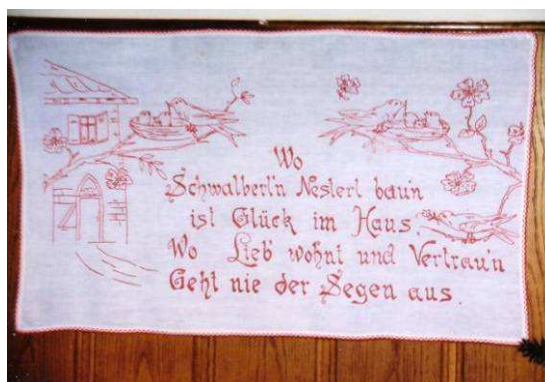 Wo
Schwalberl'n Nesterl baun
ist Glück im Haus.
Wo Lieb' wohnt und Vertraun
Geht nie der Segen aus.